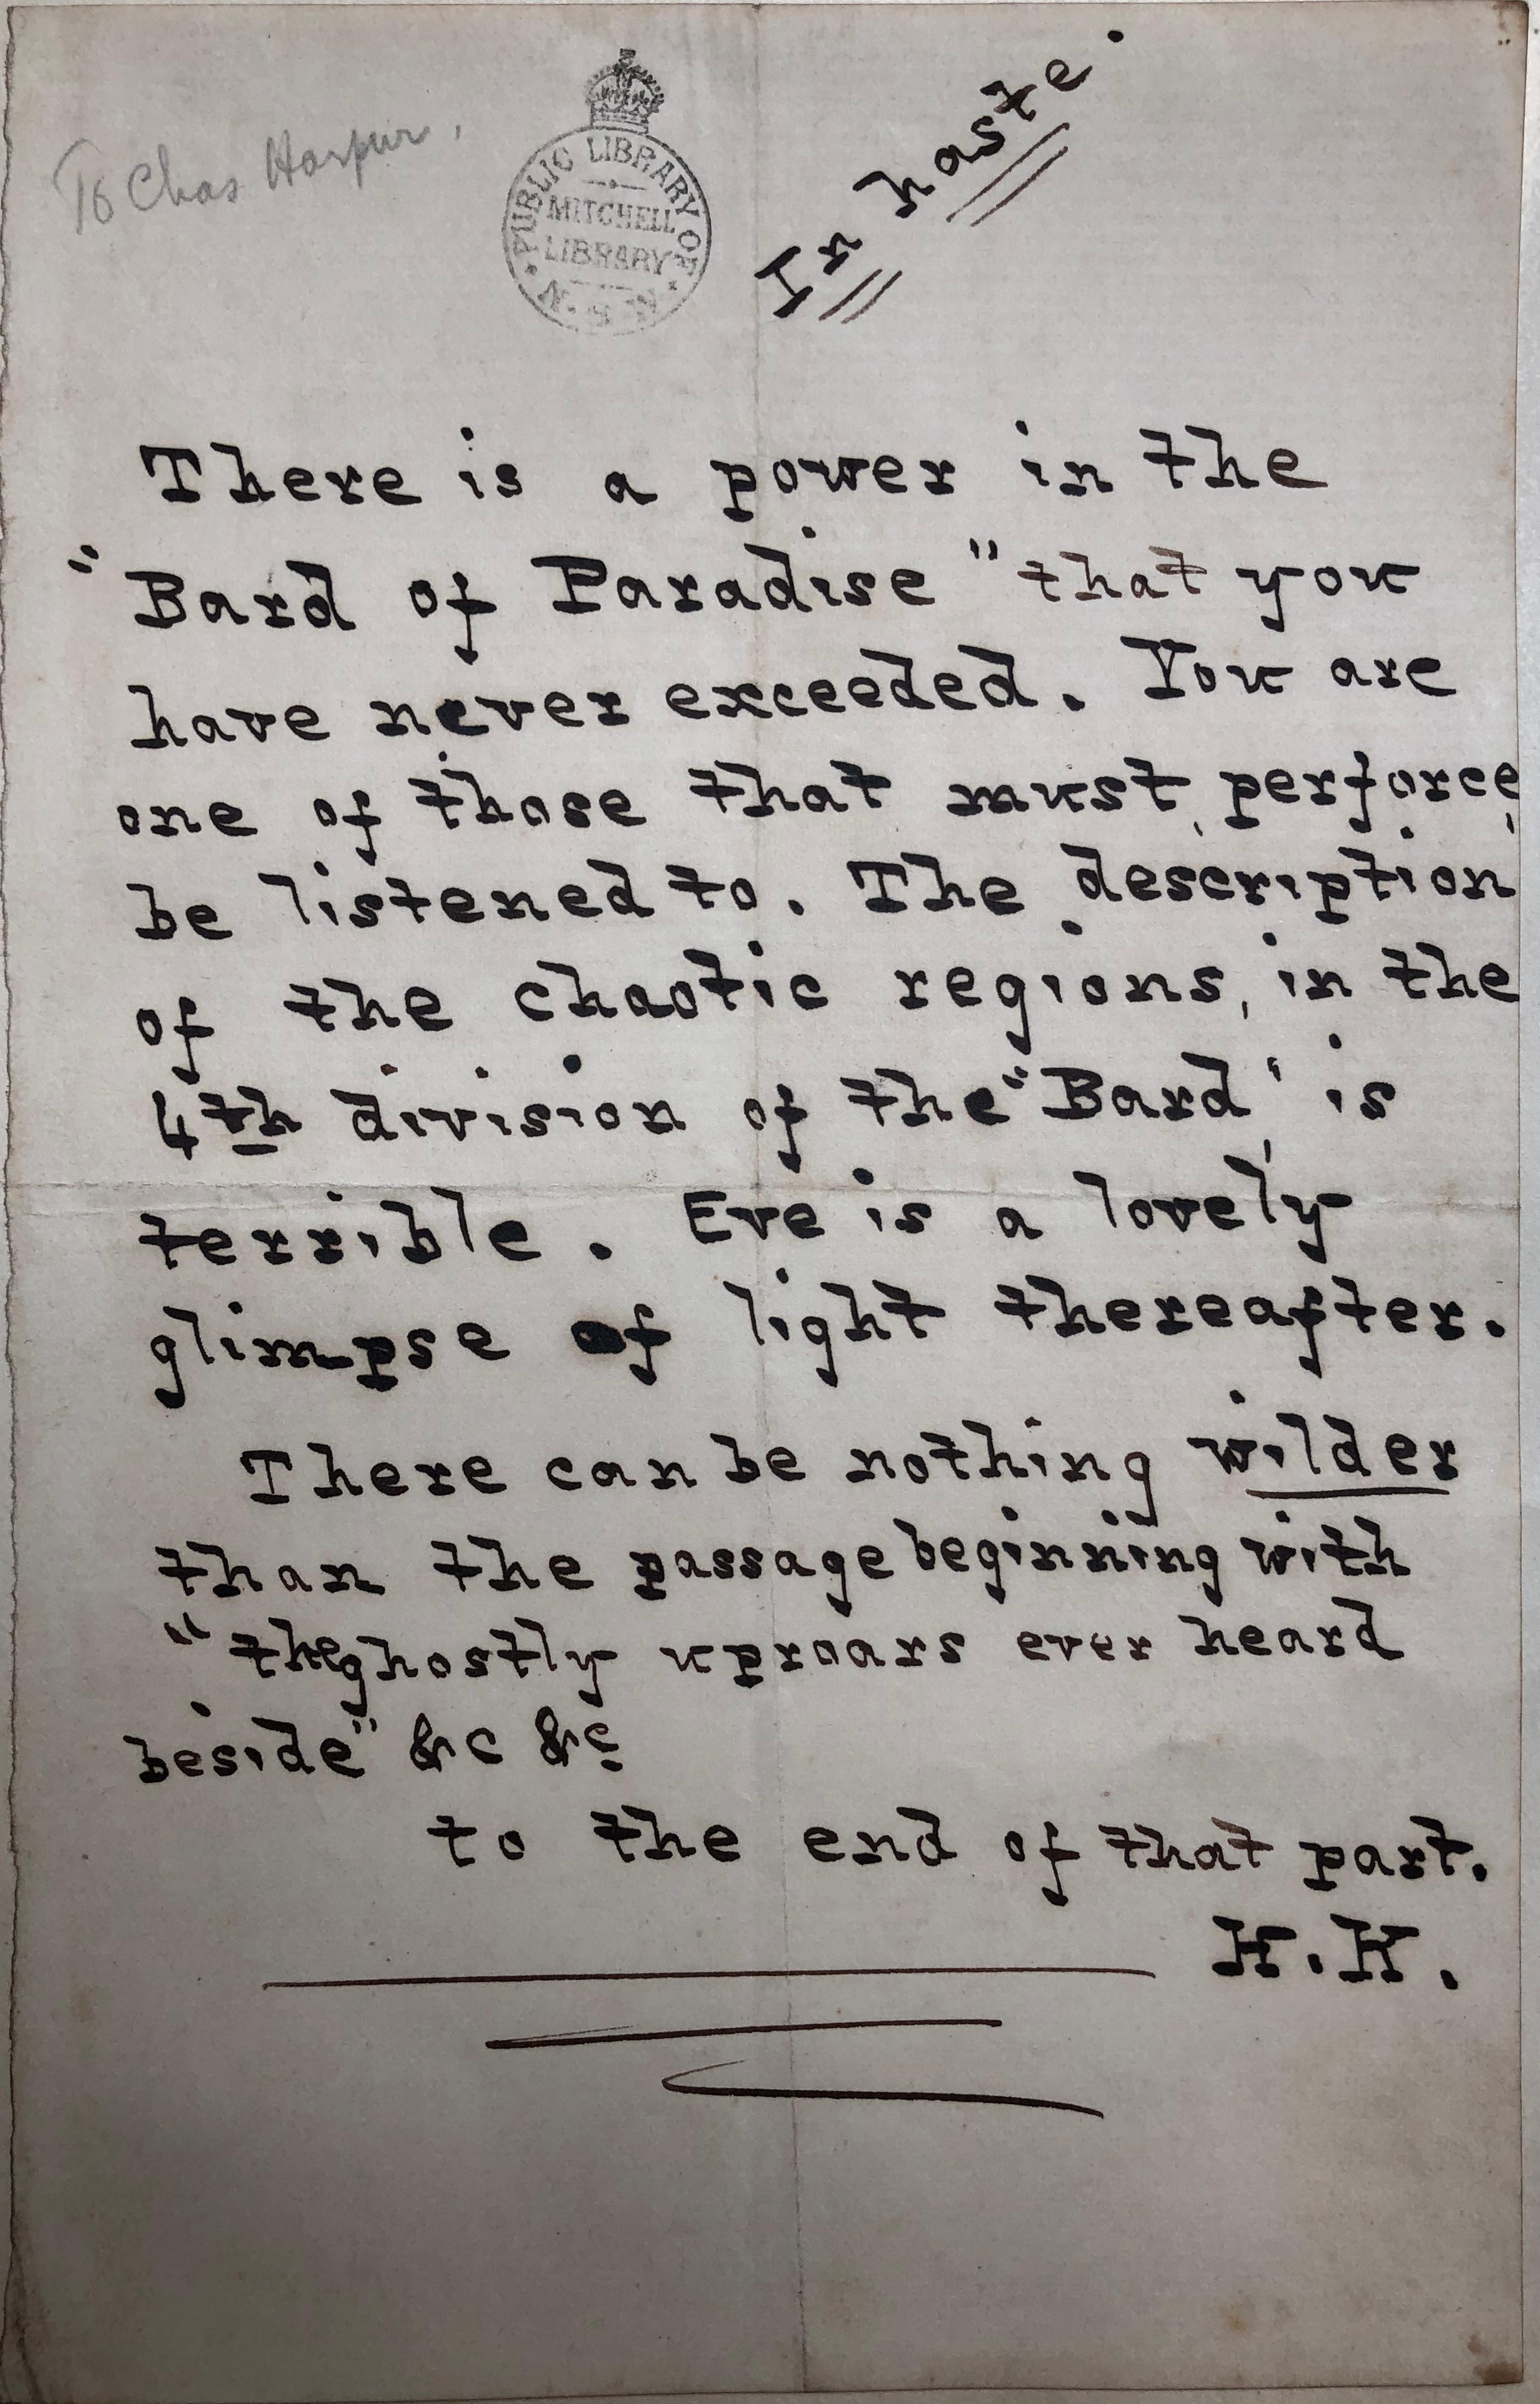 To Chas Harpur,
PUBLIC LIBRARY OF N.S.W.
MITCHELL
LIBRARY
In haste.
There is a power in the
"Bard of Paradise" that you
have never exceeded. You are
one of those that must, perforce,
be listened to. The description
of the chaotic regions, in the
4th division of the "Bard", is
terrible. Eve is a lovely
glimpse of light thereafter.
There can be nothing wilder
than the passage beginning with
"the ghostly uproars ever heard
beside" &c &c
to the end of that part.
H.K.